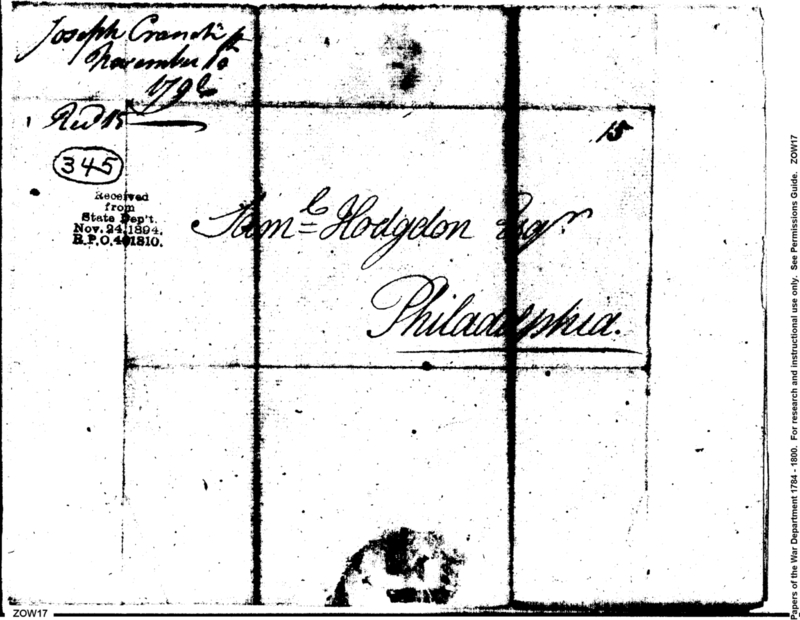 Joseph Cranch
November 10th
179
Recd 15
345
15
Received
from
State Dep't.
Nov. 24, 1894.
R.P.O. 401810.
Saml Hodgdon Esqr
Philadelphia.
ZOW17
Papers of the War Department 1784 - 1800. For research and instructional use only. See Permissions Guide. ZOW17